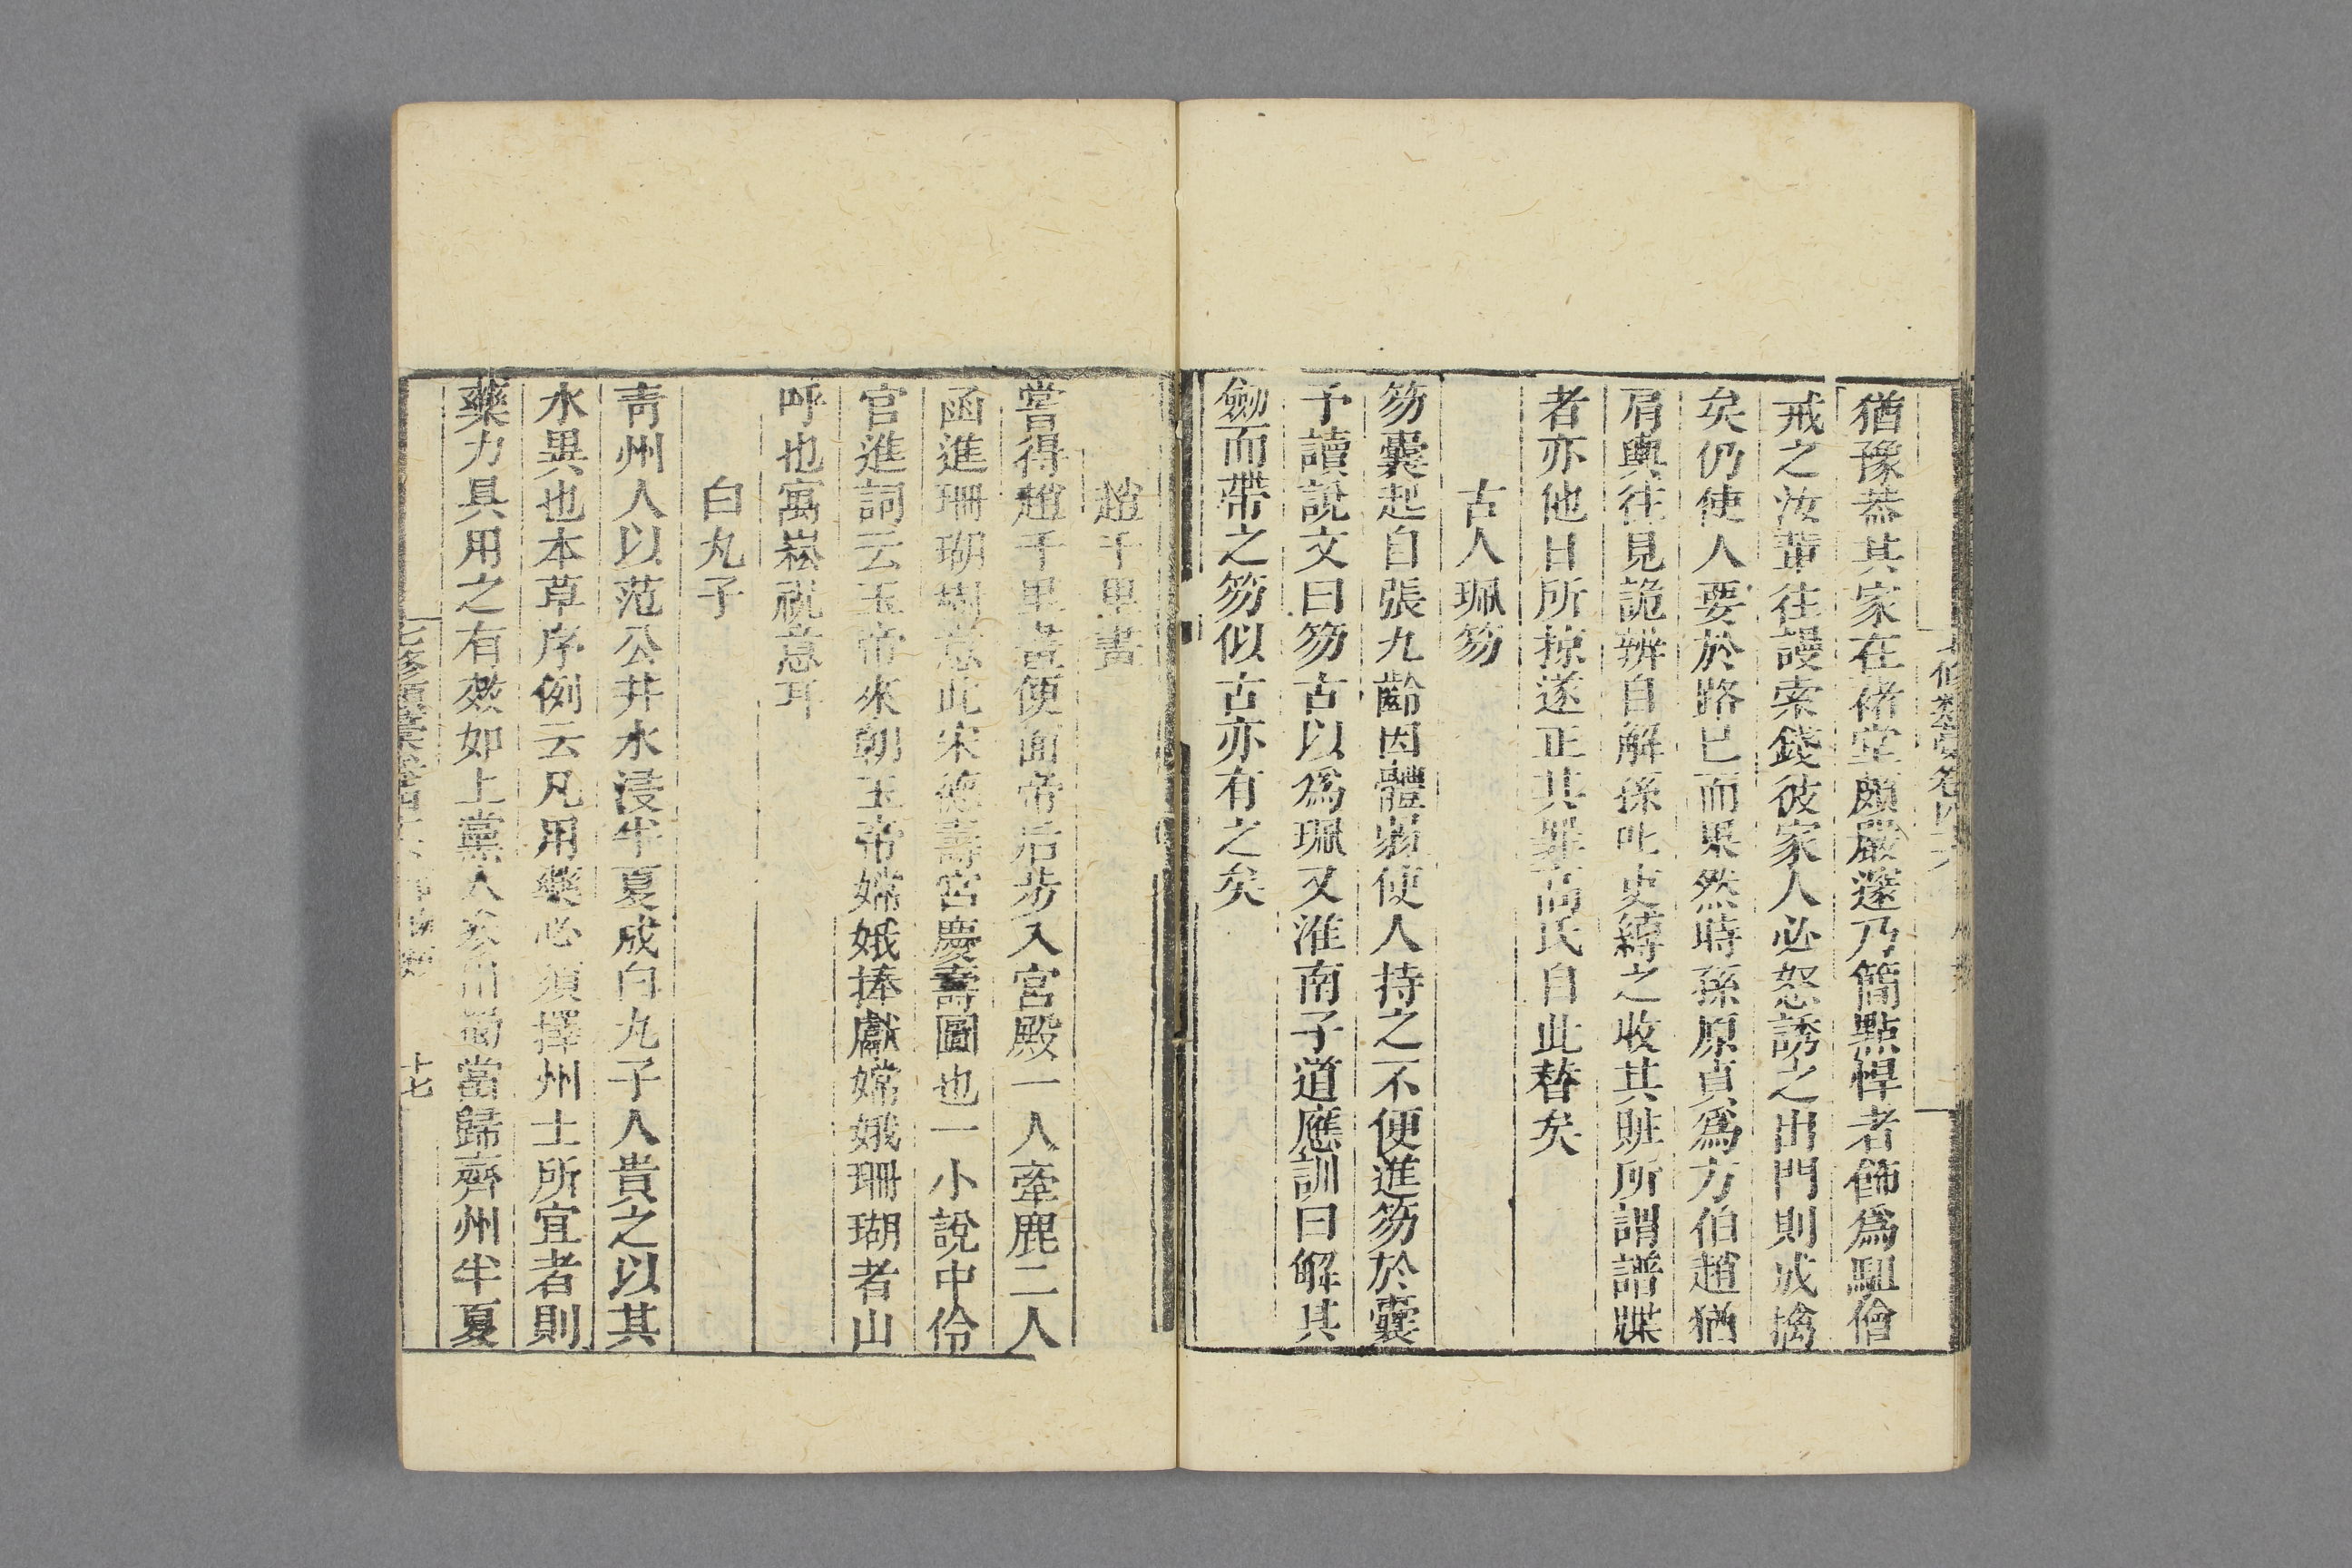 猶豫恭其家在褚堂頗嚴邃乃簡點悍者飾爲駔儈
戒之汝輩往謾索錢彼家人必怒誘之出門則成擒
矣仍使人要於路已而果然時孫原貞爲方伯趙猶
肩輿往見詭辨自解孫叱吏縛之收其贓所謂譜牒
者亦他日所掠遂正其罪高氏自此替矣
古人珮笏
笏囊起自張九齡因體弱使人持之不便進笏於囊
予讀說文曰笏古以爲珮又淮南子道應訓曰解其
劒而帶之笏似古亦有之矣
趙千里畫
嘗得趙千里畫便面帝后步入宮殿一人牽鹿二人
函進珊瑚樹意此宋德壽宮慶壽圖也一小說中伶
官進詞云玉帝來朝玉帝嫦娥捧獻嫦娥珊瑚者山
呼也寓嵩祝意耳
白丸子
靑州人以范公井水浸半夏成白丸子人貴之以其
水異也本草序例云凡用藥必須擇州土所宜者則
藥力具用之有效如上黨人參川蜀當歸齊州半夏
七修類稾卷四十六 事物類 十七